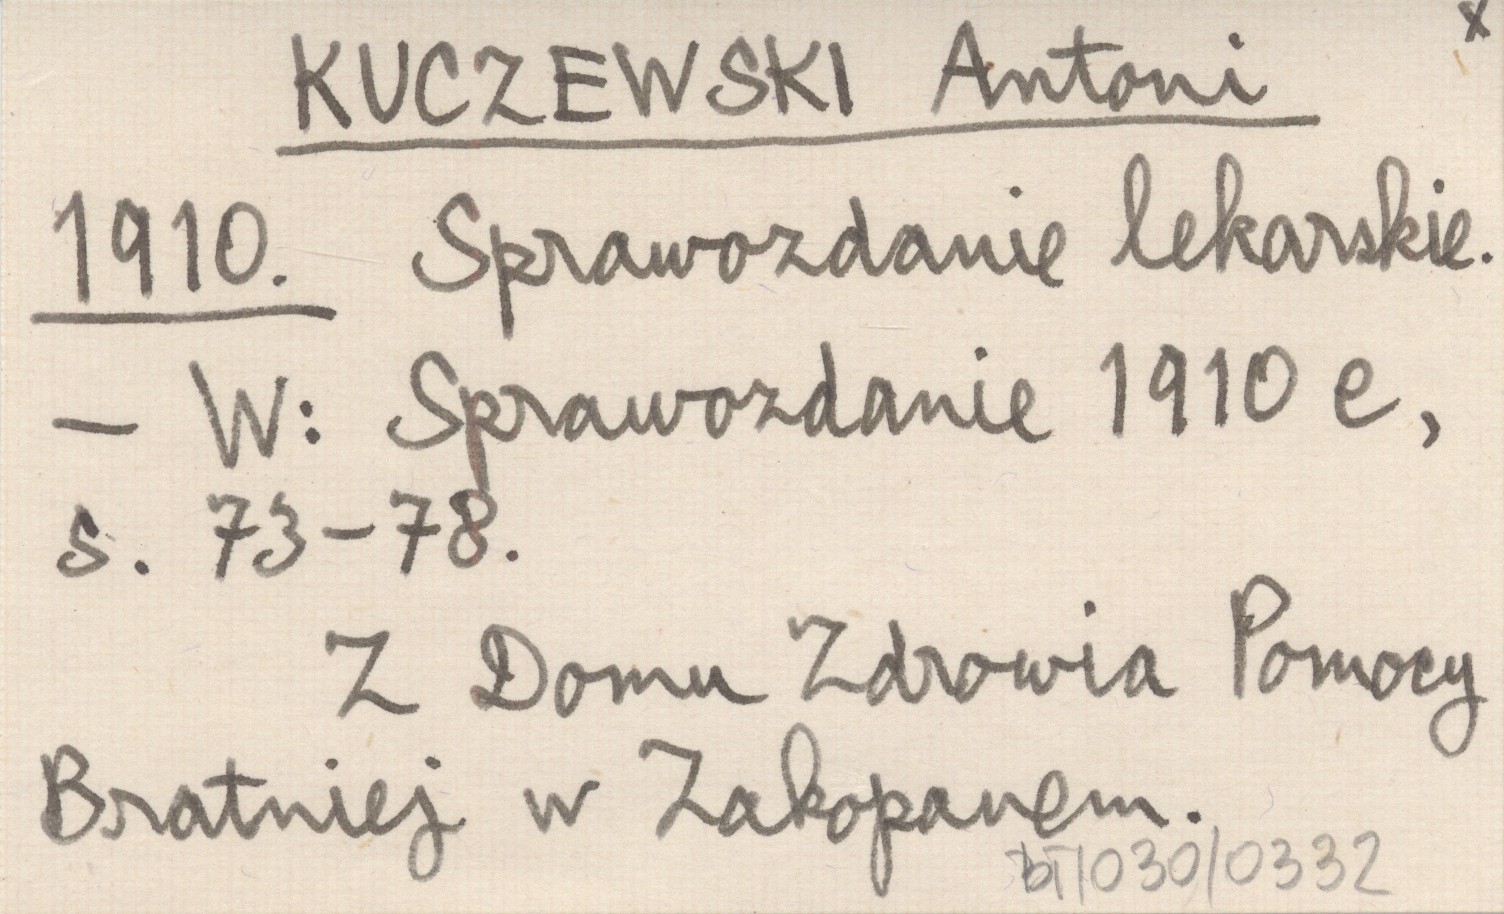 x
KUCZEWSKI Antoni
1910. Sprawozdanie lekarskie.
– W: Sprawozdanie 1910 e,
s. 73–78.
Z Domu Zdrowia Pomocy
Bratniej w Zakopanem.
bT/030/0332